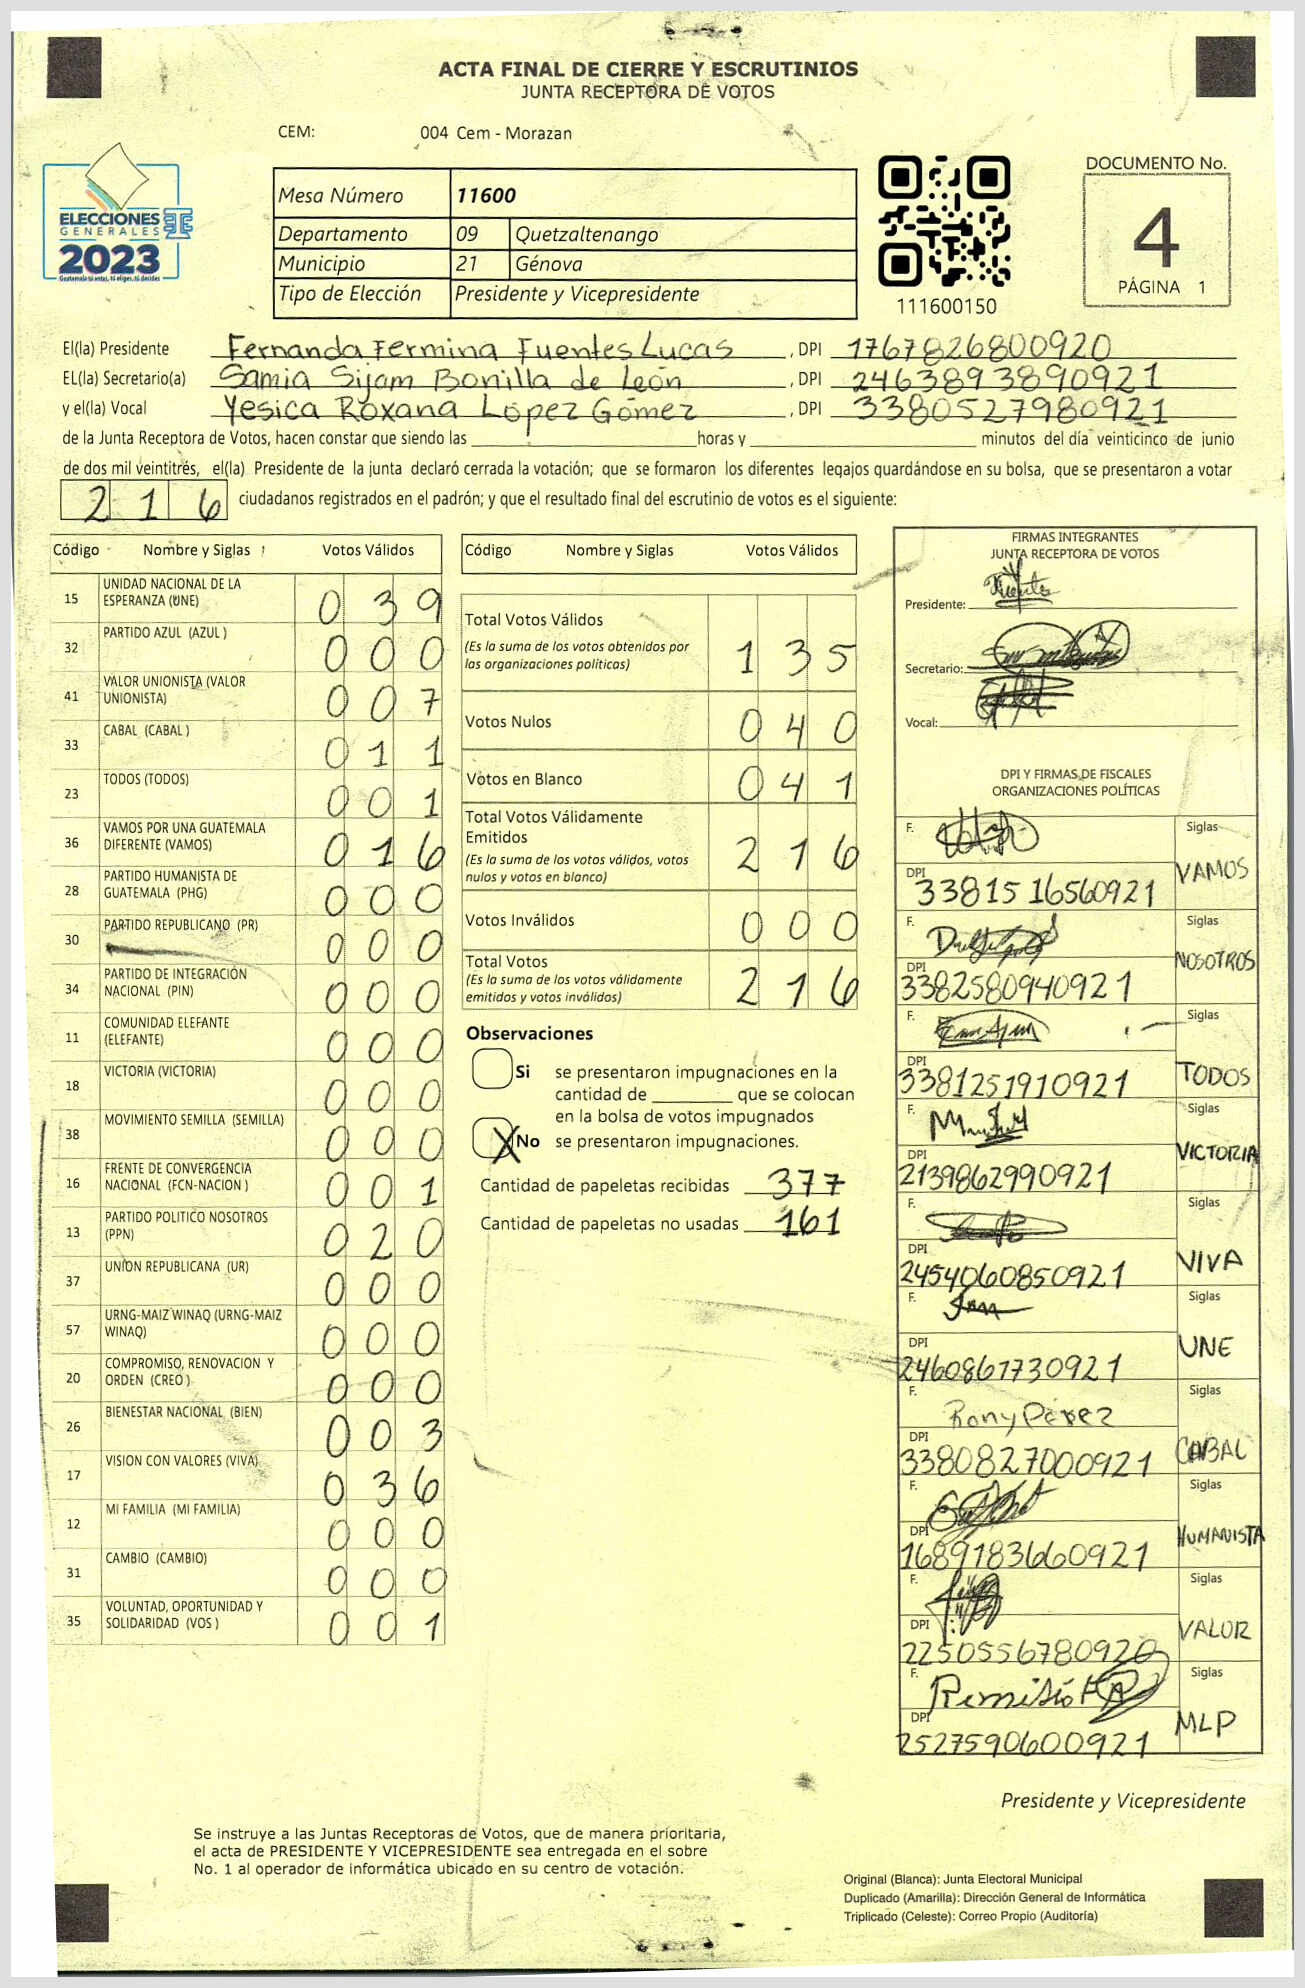 ACTA FINAL DE CIERRE Y ESCRUTINIOS
JUNTA RECEPTORA DE VOTOS
CEM: 004 Cem - Morazan
ELECCIONES
GENERALES
2023
Guatemala tú votas, tú eliges, tú decides
Mesa Número 11600
Departamento 09 Quetzaltenango
Municipio 21 Génova
Tipo de Elección Presidente y Vicepresidente
111600150
DOCUMENTO No.
4
PÁGINA 1
El(la) Presidente Fernanda Fermina Fuentes Lucas , DPI 1767826800920
EL(la) Secretario(a) Samia Sijam Bonilla de León , DPI 2463893890921
y el(la) Vocal Yesica Roxana López Gómez , DPI 3380527980921
de la Junta Receptora de Votos, hacen constar que siendo las ____ horas y ____ minutos del día veinticinco de junio
de dos mil veintitrés, el(la) Presidente de la junta declaró cerrada la votación; que se formaron los diferentes legajos guardándose en su bolsa, que se presentaron a votar
216 ciudadanos registrados en el padrón; y que el resultado final del escrutinio de votos es el siguiente:
Código Nombre y Siglas Votos Válidos
15 UNIDAD NACIONAL DE LA ESPERANZA (UNE) 039
32 PARTIDO AZUL (AZUL ) 000
41 VALOR UNIONISTA (VALOR UNIONISTA) 007
33 CABAL (CABAL ) 011
23 TODOS (TODOS) 001
36 VAMOS POR UNA GUATEMALA DIFERENTE (VAMOS) 016
28 PARTIDO HUMANISTA DE GUATEMALA (PHG) 000
30 PARTIDO REPUBLICANO (PR) 000
34 PARTIDO DE INTEGRACIÓN NACIONAL (PIN) 000
11 COMUNIDAD ELEFANTE (ELEFANTE) 000
18 VICTORIA (VICTORIA) 000
38 MOVIMIENTO SEMILLA (SEMILLA) 000
16 FRENTE DE CONVERGENCIA NACIONAL (FCN-NACION ) 001
13 PARTIDO POLITICO NOSOTROS (PPN) 020
37 UNION REPUBLICANA (UR) 000
57 URNG-MAIZ WINAQ (URNG-MAIZ WINAQ) 000
20 COMPROMISO, RENOVACION Y ORDEN (CREO ) 000
26 BIENESTAR NACIONAL (BIEN) 003
17 VISION CON VALORES (VIVA) 036
12 MI FAMILIA (MI FAMILIA) 000
31 CAMBIO (CAMBIO) 000
35 VOLUNTAD, OPORTUNIDAD Y SOLIDARIDAD (VOS ) 001
Código Nombre y Siglas Votos Válidos
Total Votos Válidos
(Es la suma de los votos obtenidos por las organizaciones políticas) 135
Votos Nulos 040
Votos en Blanco 041
Total Votos Válidamente Emitidos
(Es la suma de los votos válidos, votos nulos y votos en blanco) 216
Votos Inválidos 000
Total Votos
(Es la suma de los votos válidamente emitidos y votos inválidos) 216
Observaciones
Si se presentaron impugnaciones en la
cantidad de ____ que se colocan
en la bolsa de votos impugnados
X No se presentaron impugnaciones.
Cantidad de papeletas recibidas 377
Cantidad de papeletas no usadas 161
FIRMAS INTEGRANTES
JUNTA RECEPTORA DE VOTOS
Presidente:
Secretario:
Vocal:
DPI Y FIRMAS DE FISCALES
ORGANIZACIONES POLÍTICAS
F. Siglas
DPI 3381516560921 VAMOS
F. Siglas
DPI 3382580940921 NOSOTROS
F. Siglas
DPI 3381251910921 TODOS
F. Siglas
DPI 2139862990921 VICTORIA
F. Siglas
DPI 2454060850921 VIVA
F. Siglas
DPI 2460861730921 UNE
F. Rony Pérez Siglas
DPI 3380827000921 CABAL
F. Siglas
DPI 1689183660921 HUMANISTA
F. Siglas
DPI 2250556780920 VALOR
F. Siglas
DPI 2527590600921 MLP
Presidente y Vicepresidente
Se instruye a las Juntas Receptoras de Votos, que de manera prioritaria,
el acta de PRESIDENTE Y VICEPRESIDENTE sea entregada en el sobre
No. 1 al operador de informática ubicado en su centro de votación.
Original (Blanca): Junta Electoral Municipal
Duplicado (Amarilla): Dirección General de Informática
Triplicado (Celeste): Correo Propio (Auditoría)